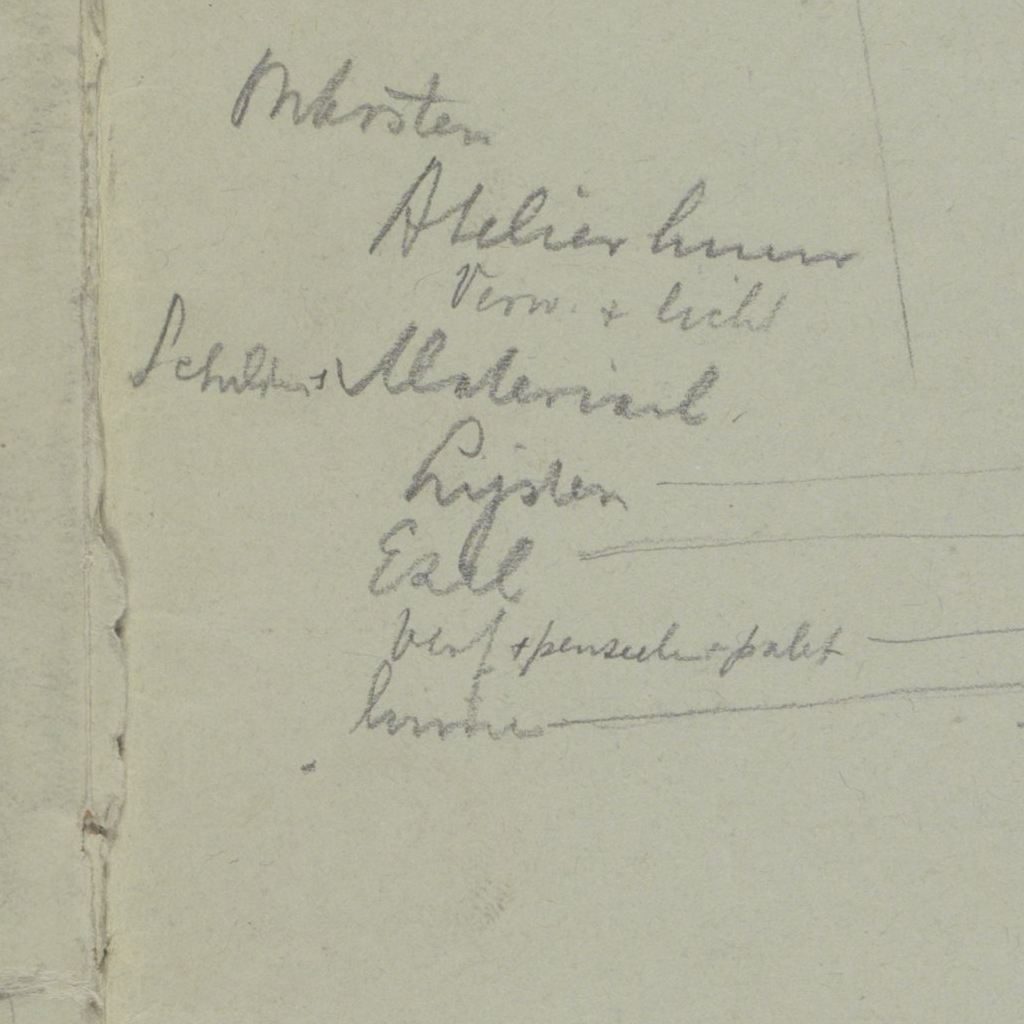 Onkosten
Atelier huur
Verw. + licht
Schilder Materiaal
Lijsten
Ezel
Verf + penseelen + palet